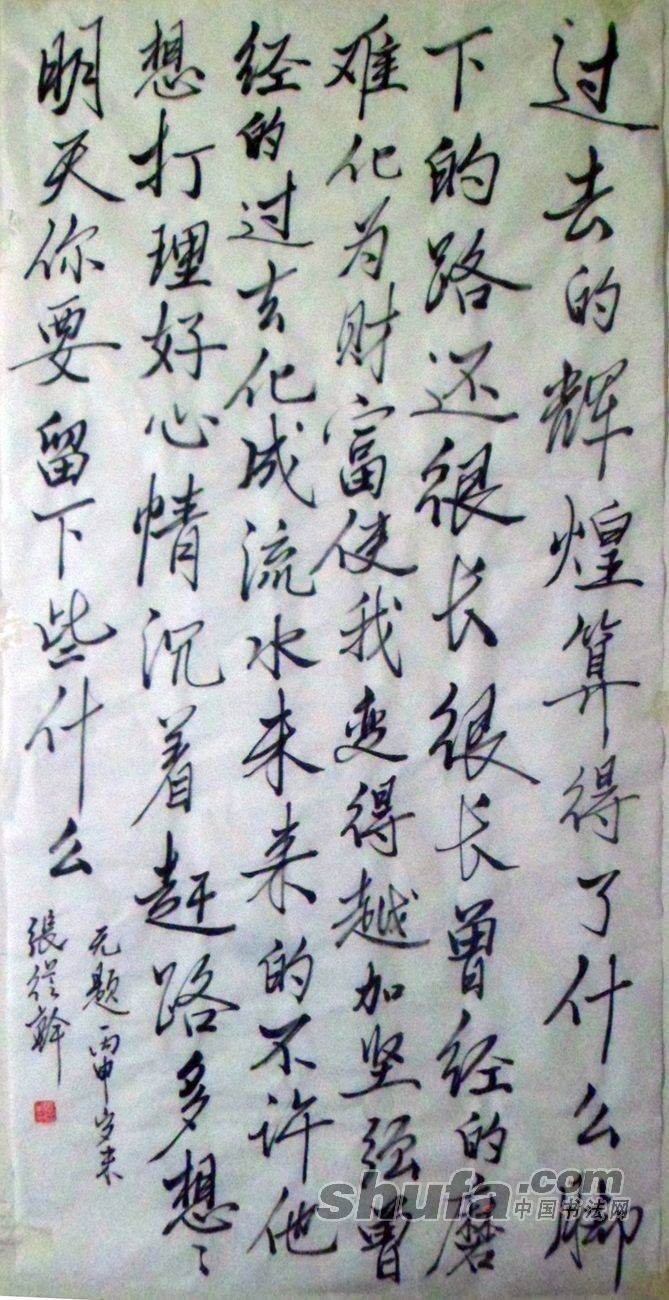 过去的辉煌算得了什么脚
下的路还很长很长曾经的磨
难化为财富使我变得越加坚强曾
经的过去化成流水未来的不许他
想打理好心情沉着赶路多想〻
明天你要留下些什么
无题丙申岁末
張從幹
shufa.com
中国书法网